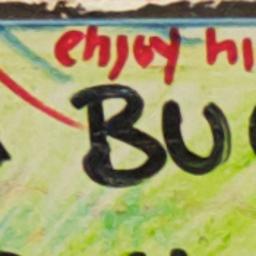 enjoy hi
BU